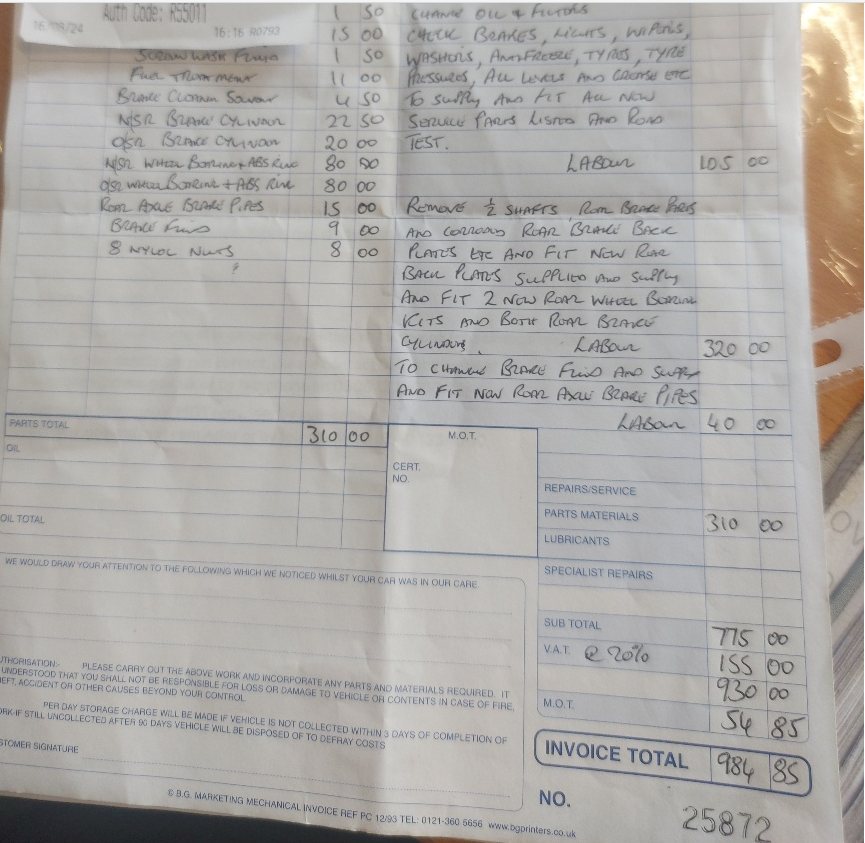 Auth Code: R55011
16:16 R0793
1 50
15 00
SCREENWASH FLUID 1 50
FUEL TREATMENT 11 00
BRAKE CLEANER SOLVENT 4 50
N/S/R BRAKE CYLINDER 22 50
O/S/R BRAKE CYLINDER 20 00
N/S/R WHEEL BEARING + ABS RING 80 00
O/S/R WHEEL BEARING + ABS RING 80 00
REAR AXLE BRAKE PIPES 15 00
BRAKE FLUID 9 00
8 NYLOC NUTS 8 00
PARTS TOTAL 310 00
OIL
OIL TOTAL
CHANGE OIL + FILTERS
CHECK BRAKES, LIGHTS, WIPERS,
WASHERS, ANTIFREEZE, TYRES, TYRE
PRESSURES, ALL LEVELS AND GREASE ETC
TO SUPPLY AND FIT ALL NEW
SERVICE PARTS LISTED AND ROAD
TEST.
LABOUR 105 00
REMOVE ½ SHAFTS, REAR BRAKE PARTS
AND CORRODED REAR BRAKE BACK
PLATES ETC AND FIT NEW REAR
BACK PLATES SUPPLIED AND SUPPLY
AND FIT 2 NEW REAR WHEEL BEARING
KITS AND BOTH REAR BRAKE
CYLINDERS. LABOUR 320 00
TO CHANGE BRAKE FLUID AND SUPPLY
AND FIT NEW REAR AXLE BRAKE PIPES
LABOUR 40 00
M.O.T.
CERT.
NO.
REPAIRS/SERVICE
PARTS MATERIALS 310 00
LUBRICANTS
SPECIALIST REPAIRS
SUB TOTAL 775 00
V.A.T. @ 20% 155 00
930 00
M.O.T. 54 85
INVOICE TOTAL 984 85
NO. 25872
WE WOULD DRAW YOUR ATTENTION TO THE FOLLOWING WHICH WE NOTICED WHILST YOUR CAR WAS IN OUR CARE
UTHORISATION:- PLEASE CARRY OUT THE ABOVE WORK AND INCORPORATE ANY PARTS AND MATERIALS REQUIRED. IT
UNDERSTOOD THAT YOU SHALL NOT BE RESPONSIBLE FOR LOSS OR DAMAGE TO VEHICLE OR CONTENTS IN CASE OF FIRE,
EFT, ACCIDENT OR OTHER CAUSES BEYOND YOUR CONTROL
PER DAY STORAGE CHARGE WILL BE MADE IF VEHICLE IS NOT COLLECTED WITHIN 3 DAYS OF COMPLETION OF
ORK-IF STILL UNCOLLECTED AFTER 90 DAYS VEHICLE WILL BE DISPOSED OF TO DEFRAY COSTS
STOMER SIGNATURE
© B.G. MARKETING MECHANICAL INVOICE REF PC 12/93 TEL: 0121-360 5656 www.bgprinters.co.uk